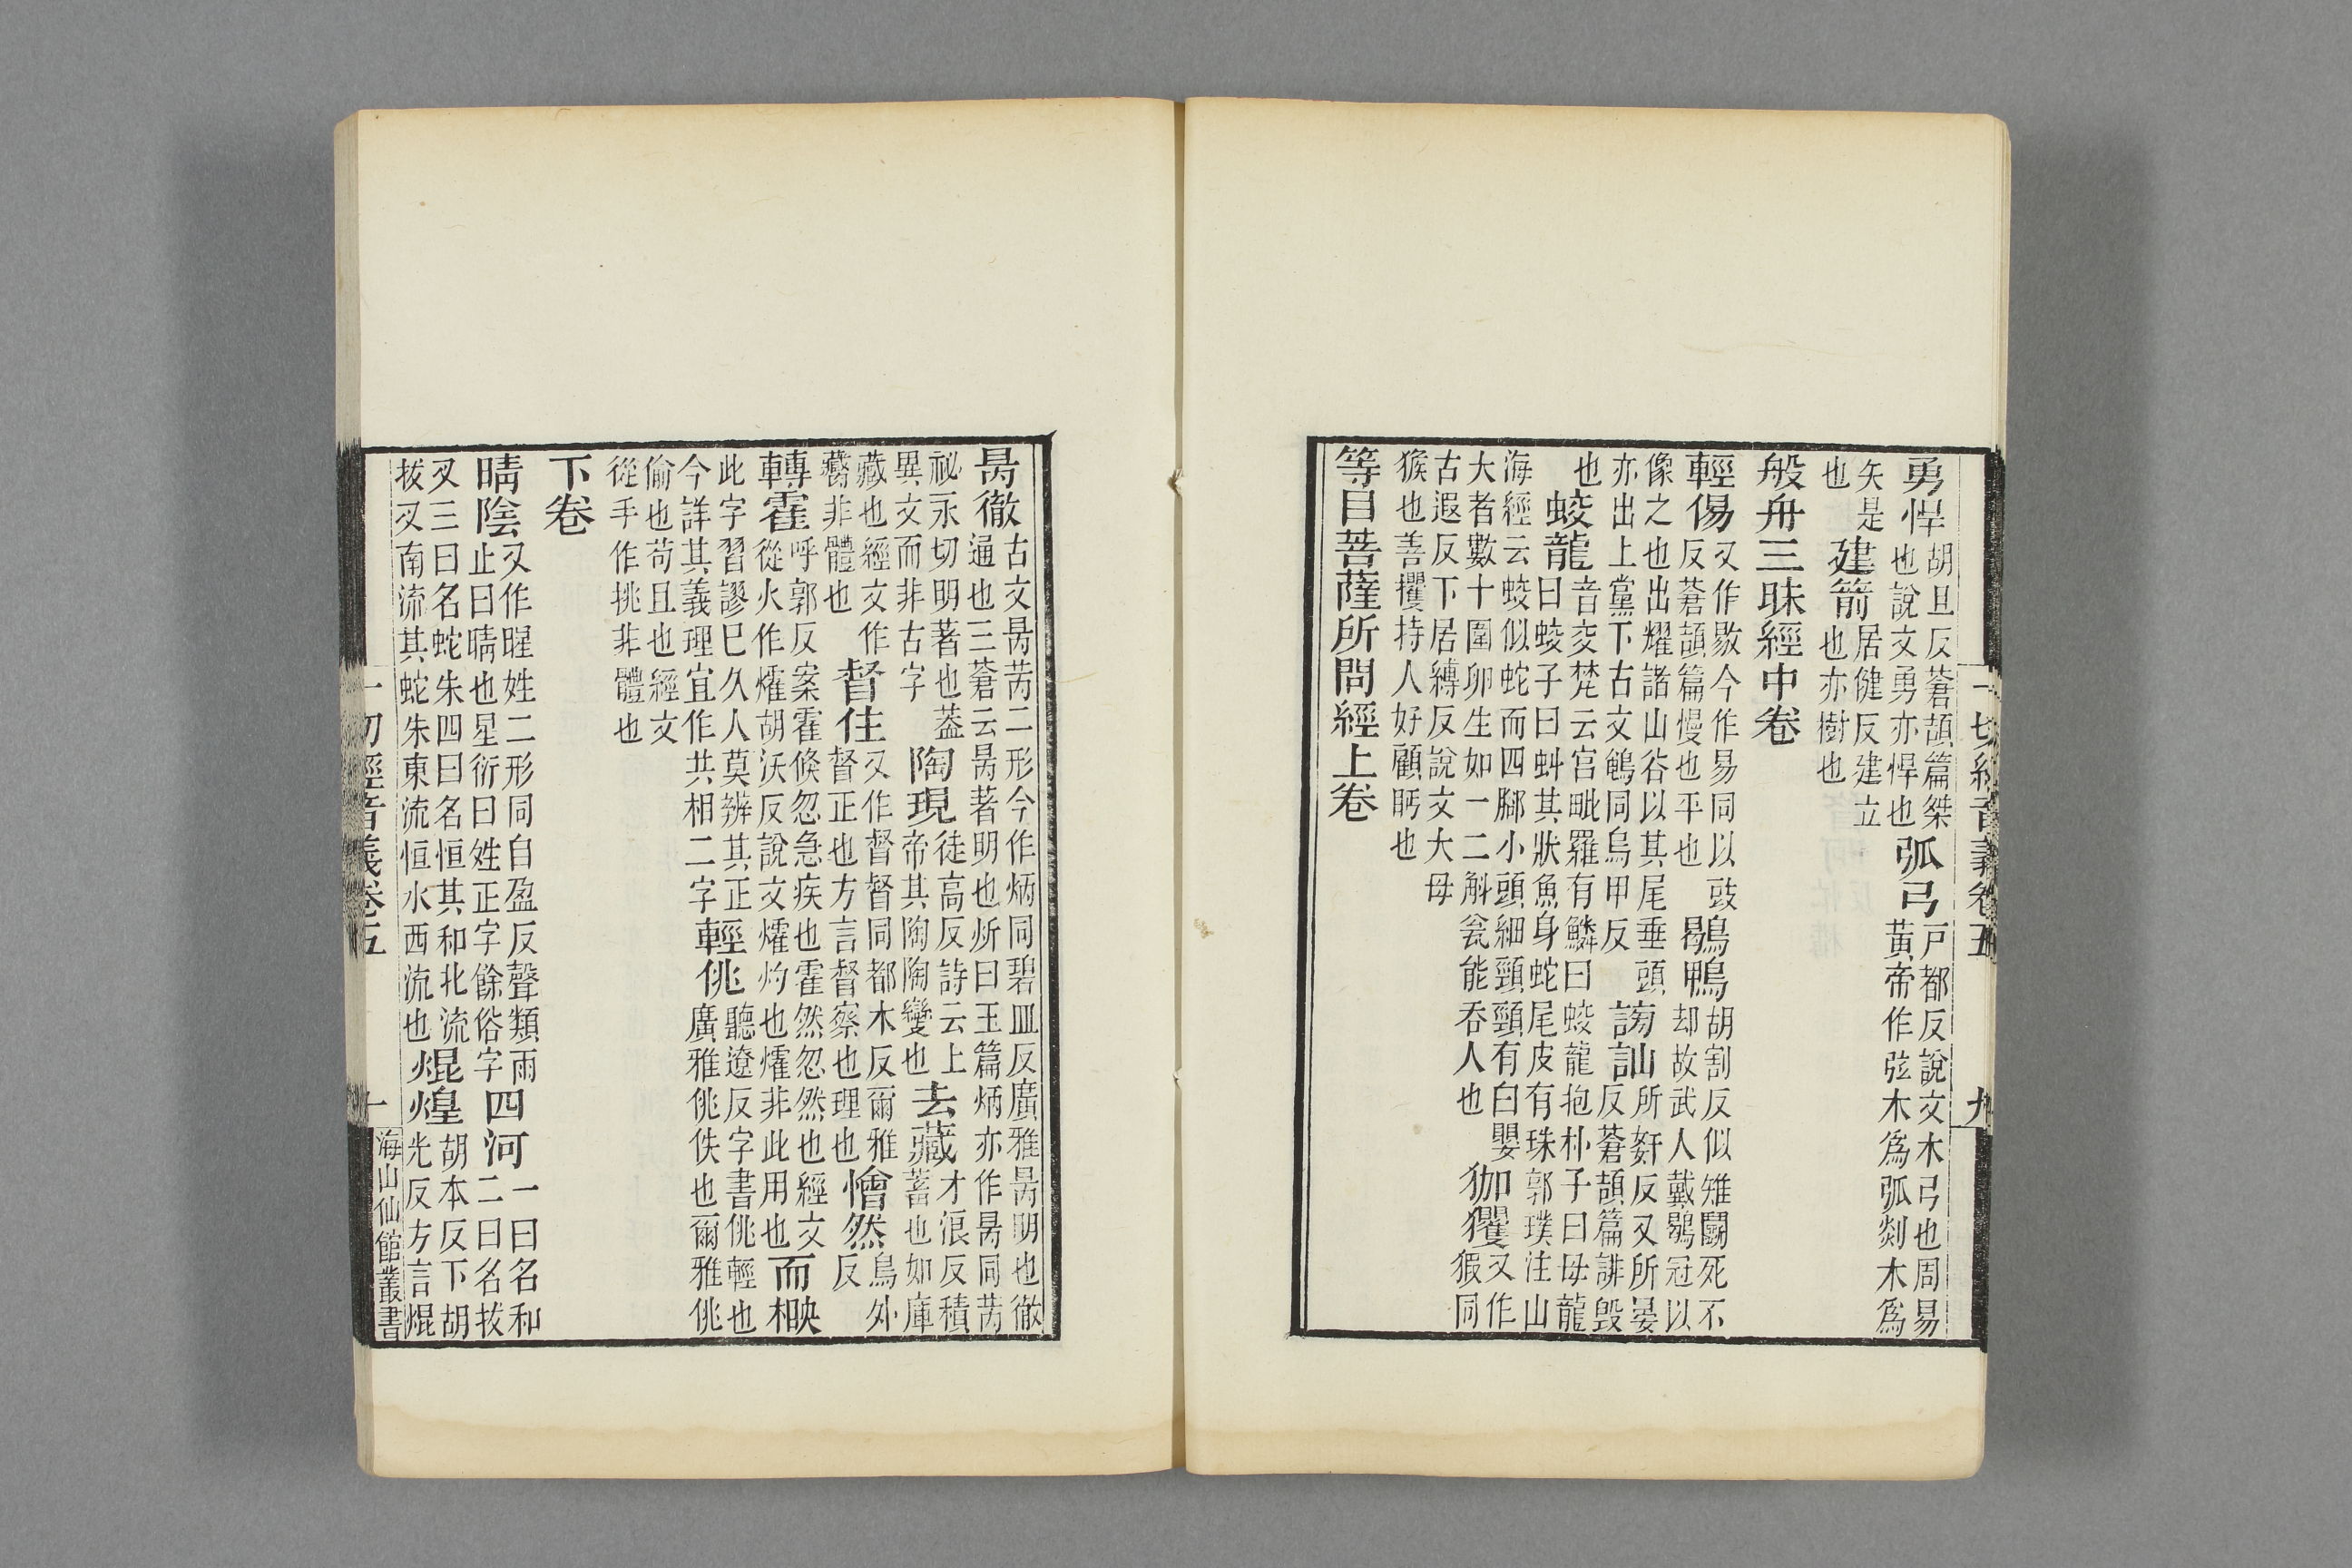 一切經音義卷五 九
勇悍胡旦反蒼頡篇桀也說文勇亦悍也弧弓戶都反說文木弓也周易黃帝作弦木爲弧剡木爲
矢是也建箭居健反建立也亦樹也
般舟三昧經中卷
輕傷又作敭今作易同以豉反蒼頡篇慢也平也鶡鴨胡割反似雉鬭死不却故武人戴鶡冠以
像之也出耀諸山谷以其尾垂頭亦出上黨下古文鵪同烏甲反謗訕所姧反又所晏反蒼頡篇誹毀
也蛟龍音交梵云宮毗羅有鱗曰蛟龍抱朴子曰母龍曰蛟子曰蚪其狀魚身蛇尾皮有珠郭璞注山
海經云蛟似蛇而四腳小頭細頸頸有白嬰大者數十圍卵生如一二斛瓮能吞人也玃又作猳同
古遐反下居縛反說文大母猴也善攫持人好顧眄也
等目菩薩所問經上卷
昺徹古文昺苪二形今作炳同碧皿反廣雅昺明也徹通也三蒼云昺著明也炘曰玉篇炳亦作昺同苪
祕永切明著也葢異文而非古字陶現徒高反詩云上帝其陶陶變也去藏才浪反積蓄也如庫
藏也經文作非體也督住又作督同都木反爾雅督正也方言督察也理也懀然烏外反
轉霍呼郭反案霍倏忽急疾也霍然忽然也經文從火作㸌胡沃反說文㸌灼也㸌非此用也而
此字習謬巳久人莫辨其正今詳其義理宜作共相二字輕佻聽遼反字書佻輕也廣雅佻佚也爾雅佻
偷也苟且也經文從手作挑非體也
下卷
晴陰又作暒姓二形同自盈反聲類雨止曰晴也星衍曰姓正字餘俗字四河一曰名和二曰名拔
叉三曰名蛇朱四曰名恒其和北流拔叉南流其蛇朱東流恒水西流也焜煌胡本反下胡光反方言焜
一切經音義卷五 十 海山仙館叢書